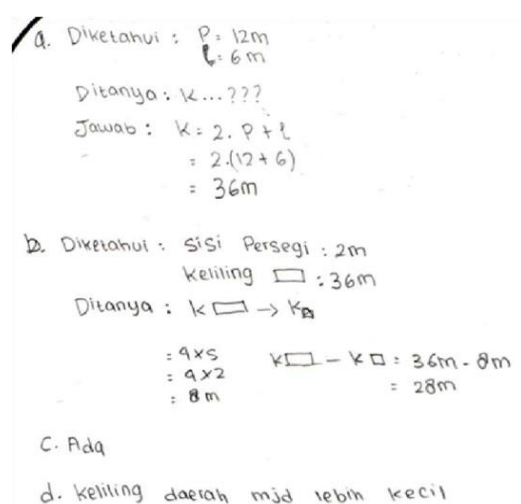 a. Diketahui : P = 12m
l = 6m
Ditanya : K...???
Jawab : K = 2. P + l
= 2.(12 + 6)
= 36m
b. Diketahui : Sisi Persegi : 2m
Keliling ▭ : 36m
Ditanya : K ▭ → K□
= 4×S
= 4×2
= 8m
K ▭ - K □ = 36m - 8m
= 28m
C. Ada
d. Keliling daerah mjd lebih kecil